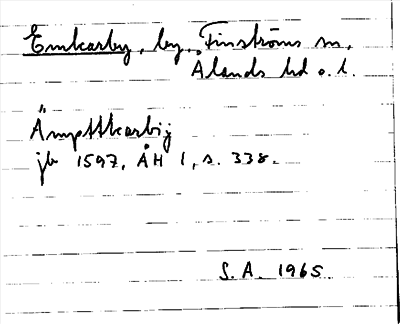 Emkarby, by, Finströms sn,
Ålands hd o. l.
Ämpttkarbij
jb 1597, ÅH 1, s. 338.
S. A. 1965